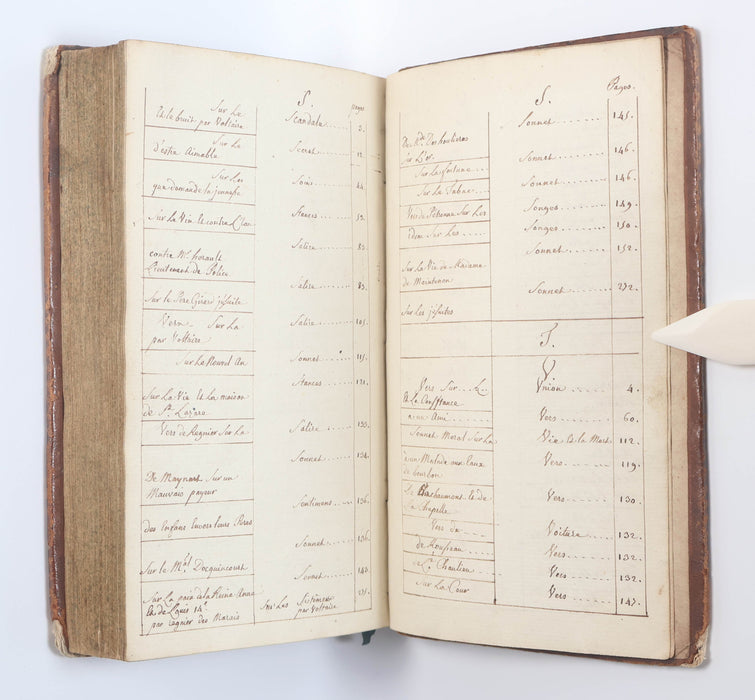 S. pages
Sur Le Scandale ...... 3.
et le bruit par Voltaire
Sur La Secret ...... 12.
d'estre Aimable
Sur Les Soins ...... 44.
que demande la jeunesse
Stances ...... 59.
Sur la Vie et contre
Satire ...... 83.
contre Mr. herault
Lieutenant de Police
Satire ...... 83.
Sur le Père Girard jesuite
Vers Sur La Satire ...... 105.
par Voltaire
Sonnet ...... 115.
Sur Le Nouvel An
Stances ...... 121.
Sur La Vie et la maison
de St. Lazare
Vers de Regnier Sur La Satire ...... 133.
Sonnet ...... 134.
De Maynart Sur un
Mauvais payeur
Sentimens ...... 136.
des Enfans Envers leurs Peres
Sonnet ...... 136.
Sur le Mal. Docquincourt
Sonnet ...... 143.
Sur La paix de la Reine Anne
et de Louis 14e.
Sur Les Sistèmes
par Voltaire
par regnier des Marais
S. Pages.
Sonnet ...... 145.
De Me. Deshoulieres
Sur L'or Sonnet ...... 146.
Sur La fortune
Sur La Tabac Sonnet ...... 146.
Vers de Sur Les Songes ...... 149.
idem Sur Les Songes ...... 150.
Sonnet ...... 152.
Sur La Vie de Madame
de Maintenon
Sonnet ...... 272.
Sur Les jesuites
T.
V
Vers Sur L Union ...... 4.
et La Constance
a un Ami Vers ...... 60.
Sonnet Moral Sur La Vie et la Mort 112.
à un Malade aux Eaux Vers ...... 119.
de bourbon
De Bachaumont et de Vers ...... 130.
La Chapelle
Vers de Voiture ...... 132.
de Rousseau Vers ...... 132.
de Chaulieu Vers ...... 132.
Sur La Cour Vers ...... 147.